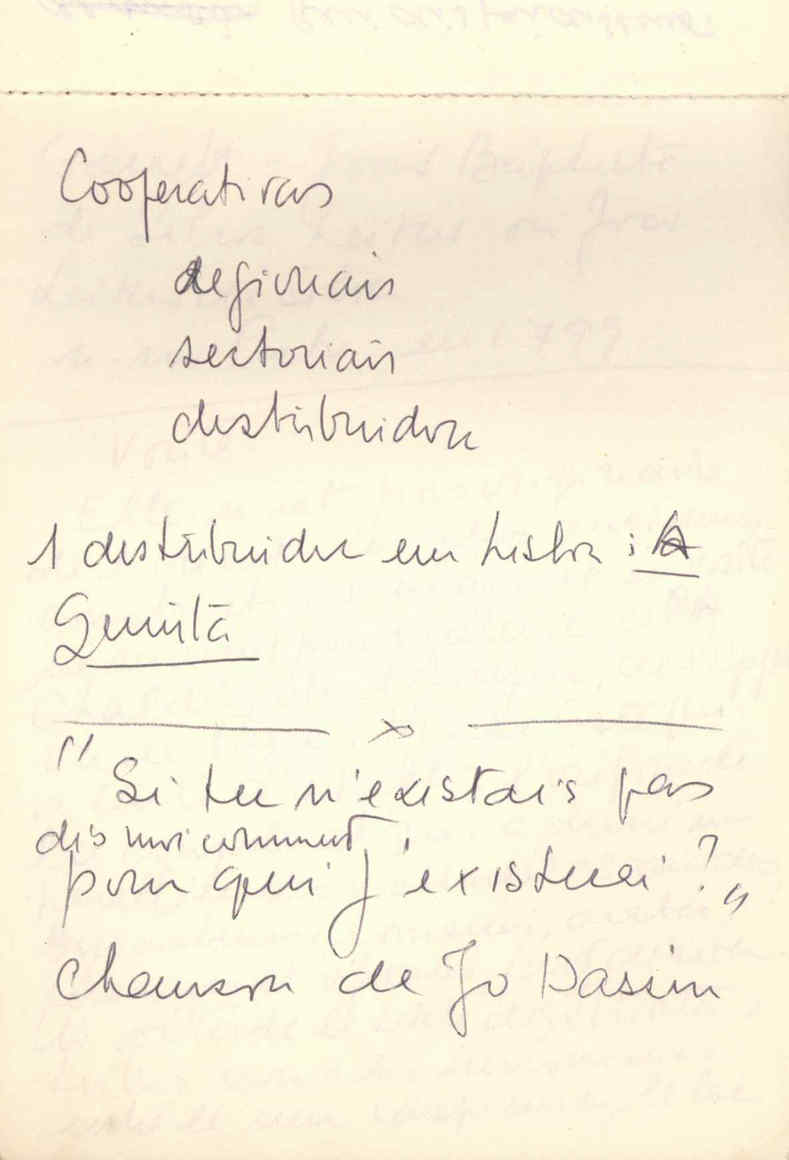 Cooperativas
regionais
sectoriais
distribuidora
1 distribuidora em Lisboa :
"Si tu n'existais pas
dis moi comment
pour qui j'existerai ?"
Chanson de Jo Dassin